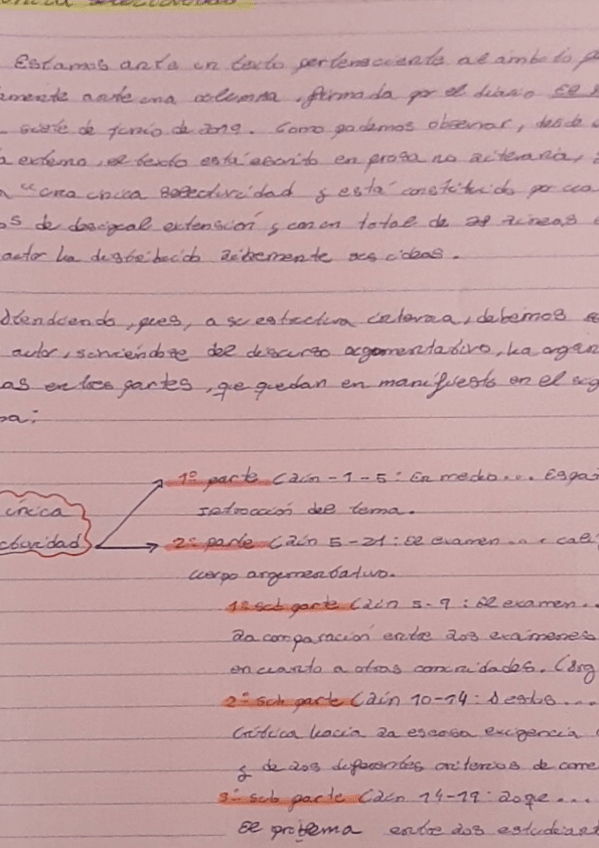 única selectividad
Estamos ante un texto perteneciente al ámbito p
amente ante una columna, firmada por el diario
siete de junio de 2019. Como podemos observar, desde
a externo, el texto está escrito en prosa no literaria,
"una única selectividad y está constituido por
os de desigual extensión y con un total de 29 líneas
autor ha distribuido libremente sus ideas.
Atendiendo, pues, a su estructura interna, debemos
autor, sirviéndose del discurso argumentativo, ha organ
as en tres partes, que quedan en manifiesto en el
a:
única
ctividad
1º parte (lín - 1 - 5: En medio... Espa
Introcción del tema.
2º parte (lín 5 - 21: El examen ... cali
cuerpo argumentativo.
1º sub parte (lín 5 - 9: El examen...
la comparación entre los exámenes
en cuanto a otras comunidades. (arg
2º sub parte (lín 10 - 14: Desde...
Crítica hacia la escasa exigencia
y de los diferentes criterios de corre
3º sub parte (lín 14 - 19: lo que ...
El problema entre los estudiant